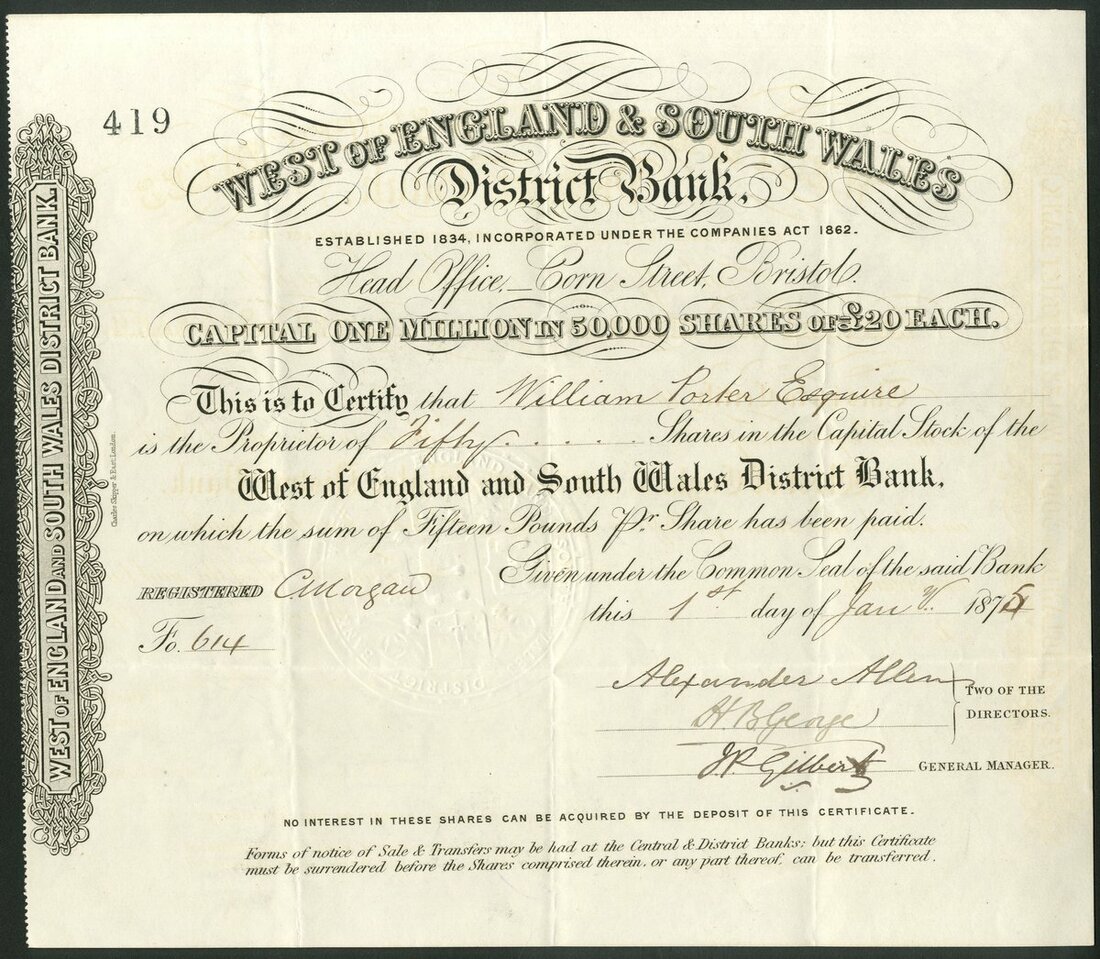 419
WEST OF ENGLAND & SOUTH WALES
District Bank,
ESTABLISHED 1834, INCORPORATED UNDER THE COMPANIES ACT 1862.
Head Office, Corn Street, Bristol.
CAPITAL ONE MILLION IN 50,000 SHARES OF £20 EACH.
This is to Certify that William Porter Esquire
is the Proprietor of Fifty . . . . . . Shares in the Capital Stock of the
West of England and South Wales District Bank,
on which the sum of Fifteen Pounds Pr Share has been paid.
Given under the Common Seal of the said Bank
REGISTERED CMorgan
this 1st day of Jany. 187
Fo. 614
Alexander Allen
H B George
TWO OF THE DIRECTORS.
J P Gilbert GENERAL MANAGER.
NO INTEREST IN THESE SHARES CAN BE ACQUIRED BY THE DEPOSIT OF THIS CERTIFICATE.
Forms of notice of Sale & Transfers may be had at the Central & District Banks; but this Certificate
must be surrendered before the Shares comprised therein, or any part thereof, can be transferred.
WEST OF ENGLAND AND SOUTH WALES DISTRICT BANK.
Charles Skipper & East London.